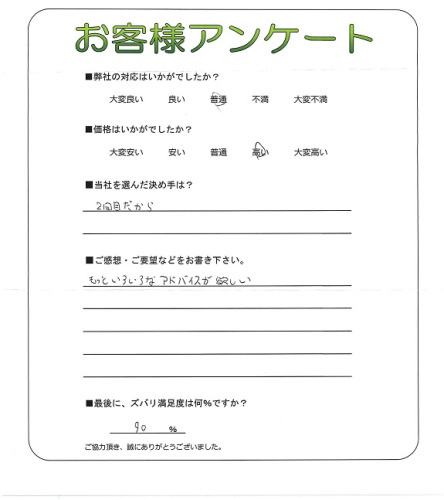 お客様アンケート
■弊社の対応はいかがでしたか？
大変良い 良い 普通 不満 大変不満
■価格はいかがでしたか？
大変安い 安い 普通 高い 大変高い
■当社を選んだ決め手は？
2回目だから
■ご感想・ご要望などをお書き下さい。
もっといろいろな アドバイスが 欲しい
■最後に、ズバリ満足度は何％ですか？
90 ％
ご協力頂き、誠にありがとうございました。